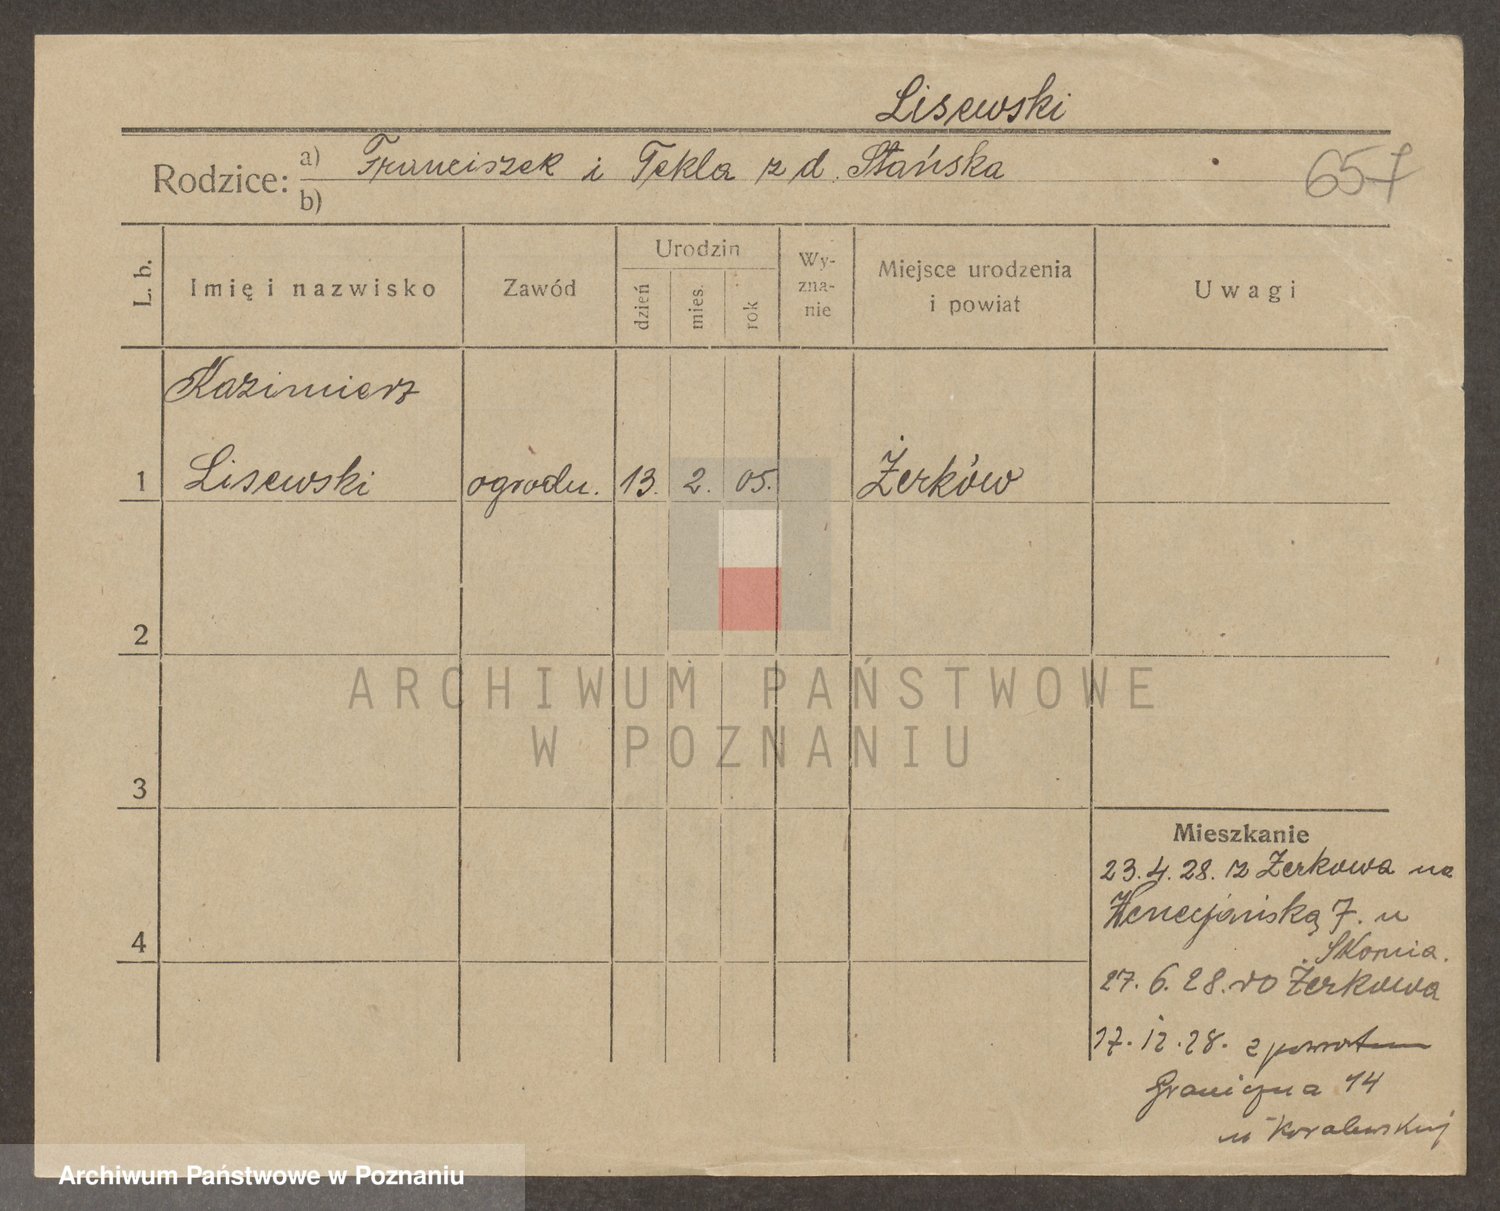 Lisewski
Rodzice: a) Franciszek i Tekla z d. Stańska
b)
657
L. b.
Imię i nazwisko
Zawód
Urodzin
dzień
mies.
rok
Wy-
zna-
nie
Miejsce urodzenia
i powiat
Uwagi
Kazimierz
1 Lisewski ogrodn. 13. 2. 05. Żerków
2
3
4
Mieszkanie
23.4.28. z Żerkowa na
Wenecjańską 7. u
Skornia.
27.6.28. do Żerkowa
17.12.28. z powrotem
Graniczna 14
u Koralewskiej
ARCHIWUM PAŃSTWOWE
W POZNANIU
Archiwum Państwowe w Poznaniu